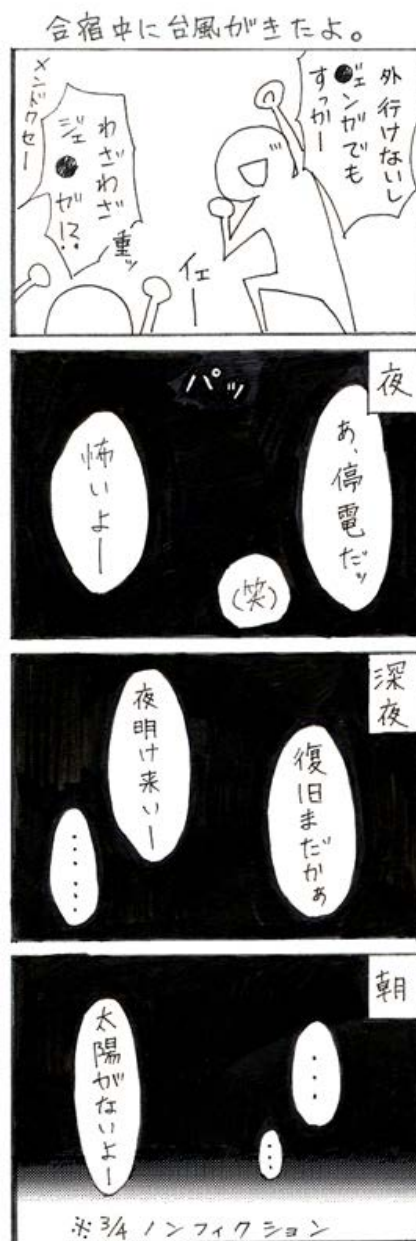 合宿中に台風がきたよ。
外行けないし
●ェンガでも
すっかー
イェー
わざわざ
ジェ●ガ!?
重ッ
メンドクセー
夜
パッ
あ、停電だッ
(笑)
怖いよー
深夜
復旧まだかぁ
夜明け来いー
……
朝
…
…
太陽がないよー
※3/4ノンフィクション